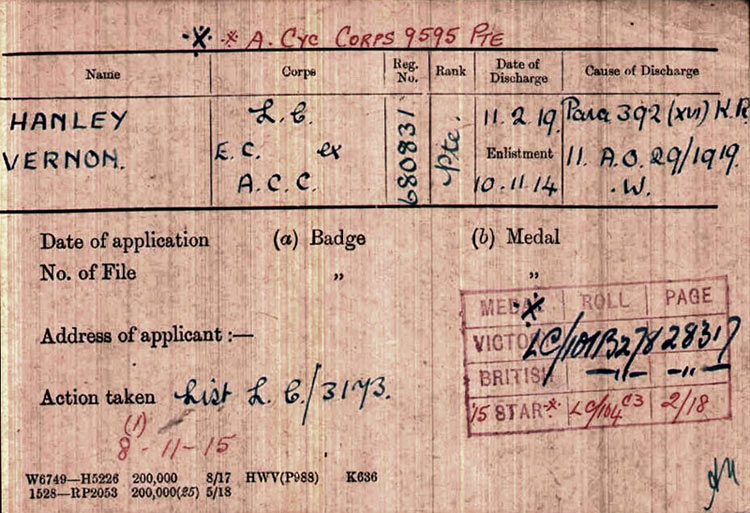 * * A. CYC CORPS 9595 PTE
Name Corps Reg. No. Rank Date of Discharge Cause of Discharge
HANLEY L.C. 680831 Pte. 11.2.19. Para 392 (xvi) K.R.
VERNON. E.C. ex Enlistment 11. A.O. 29/1919.
A.C.C. 10.11.14 .W.
Date of application (a) Badge (b) Medal
No. of File „ „
MEDAL * ROLL PAGE
Address of applicant :—
VICTO LC/101B278 28317
BRITISH —„— —„—
Action taken List L.C./3173.
15 STAR * LC/104 C3 2/18
(1)
8-11-15
W6749—H5226 200,000 8/17 HWV(P988) K636
1528—RP2053 200,000(25) 5/18